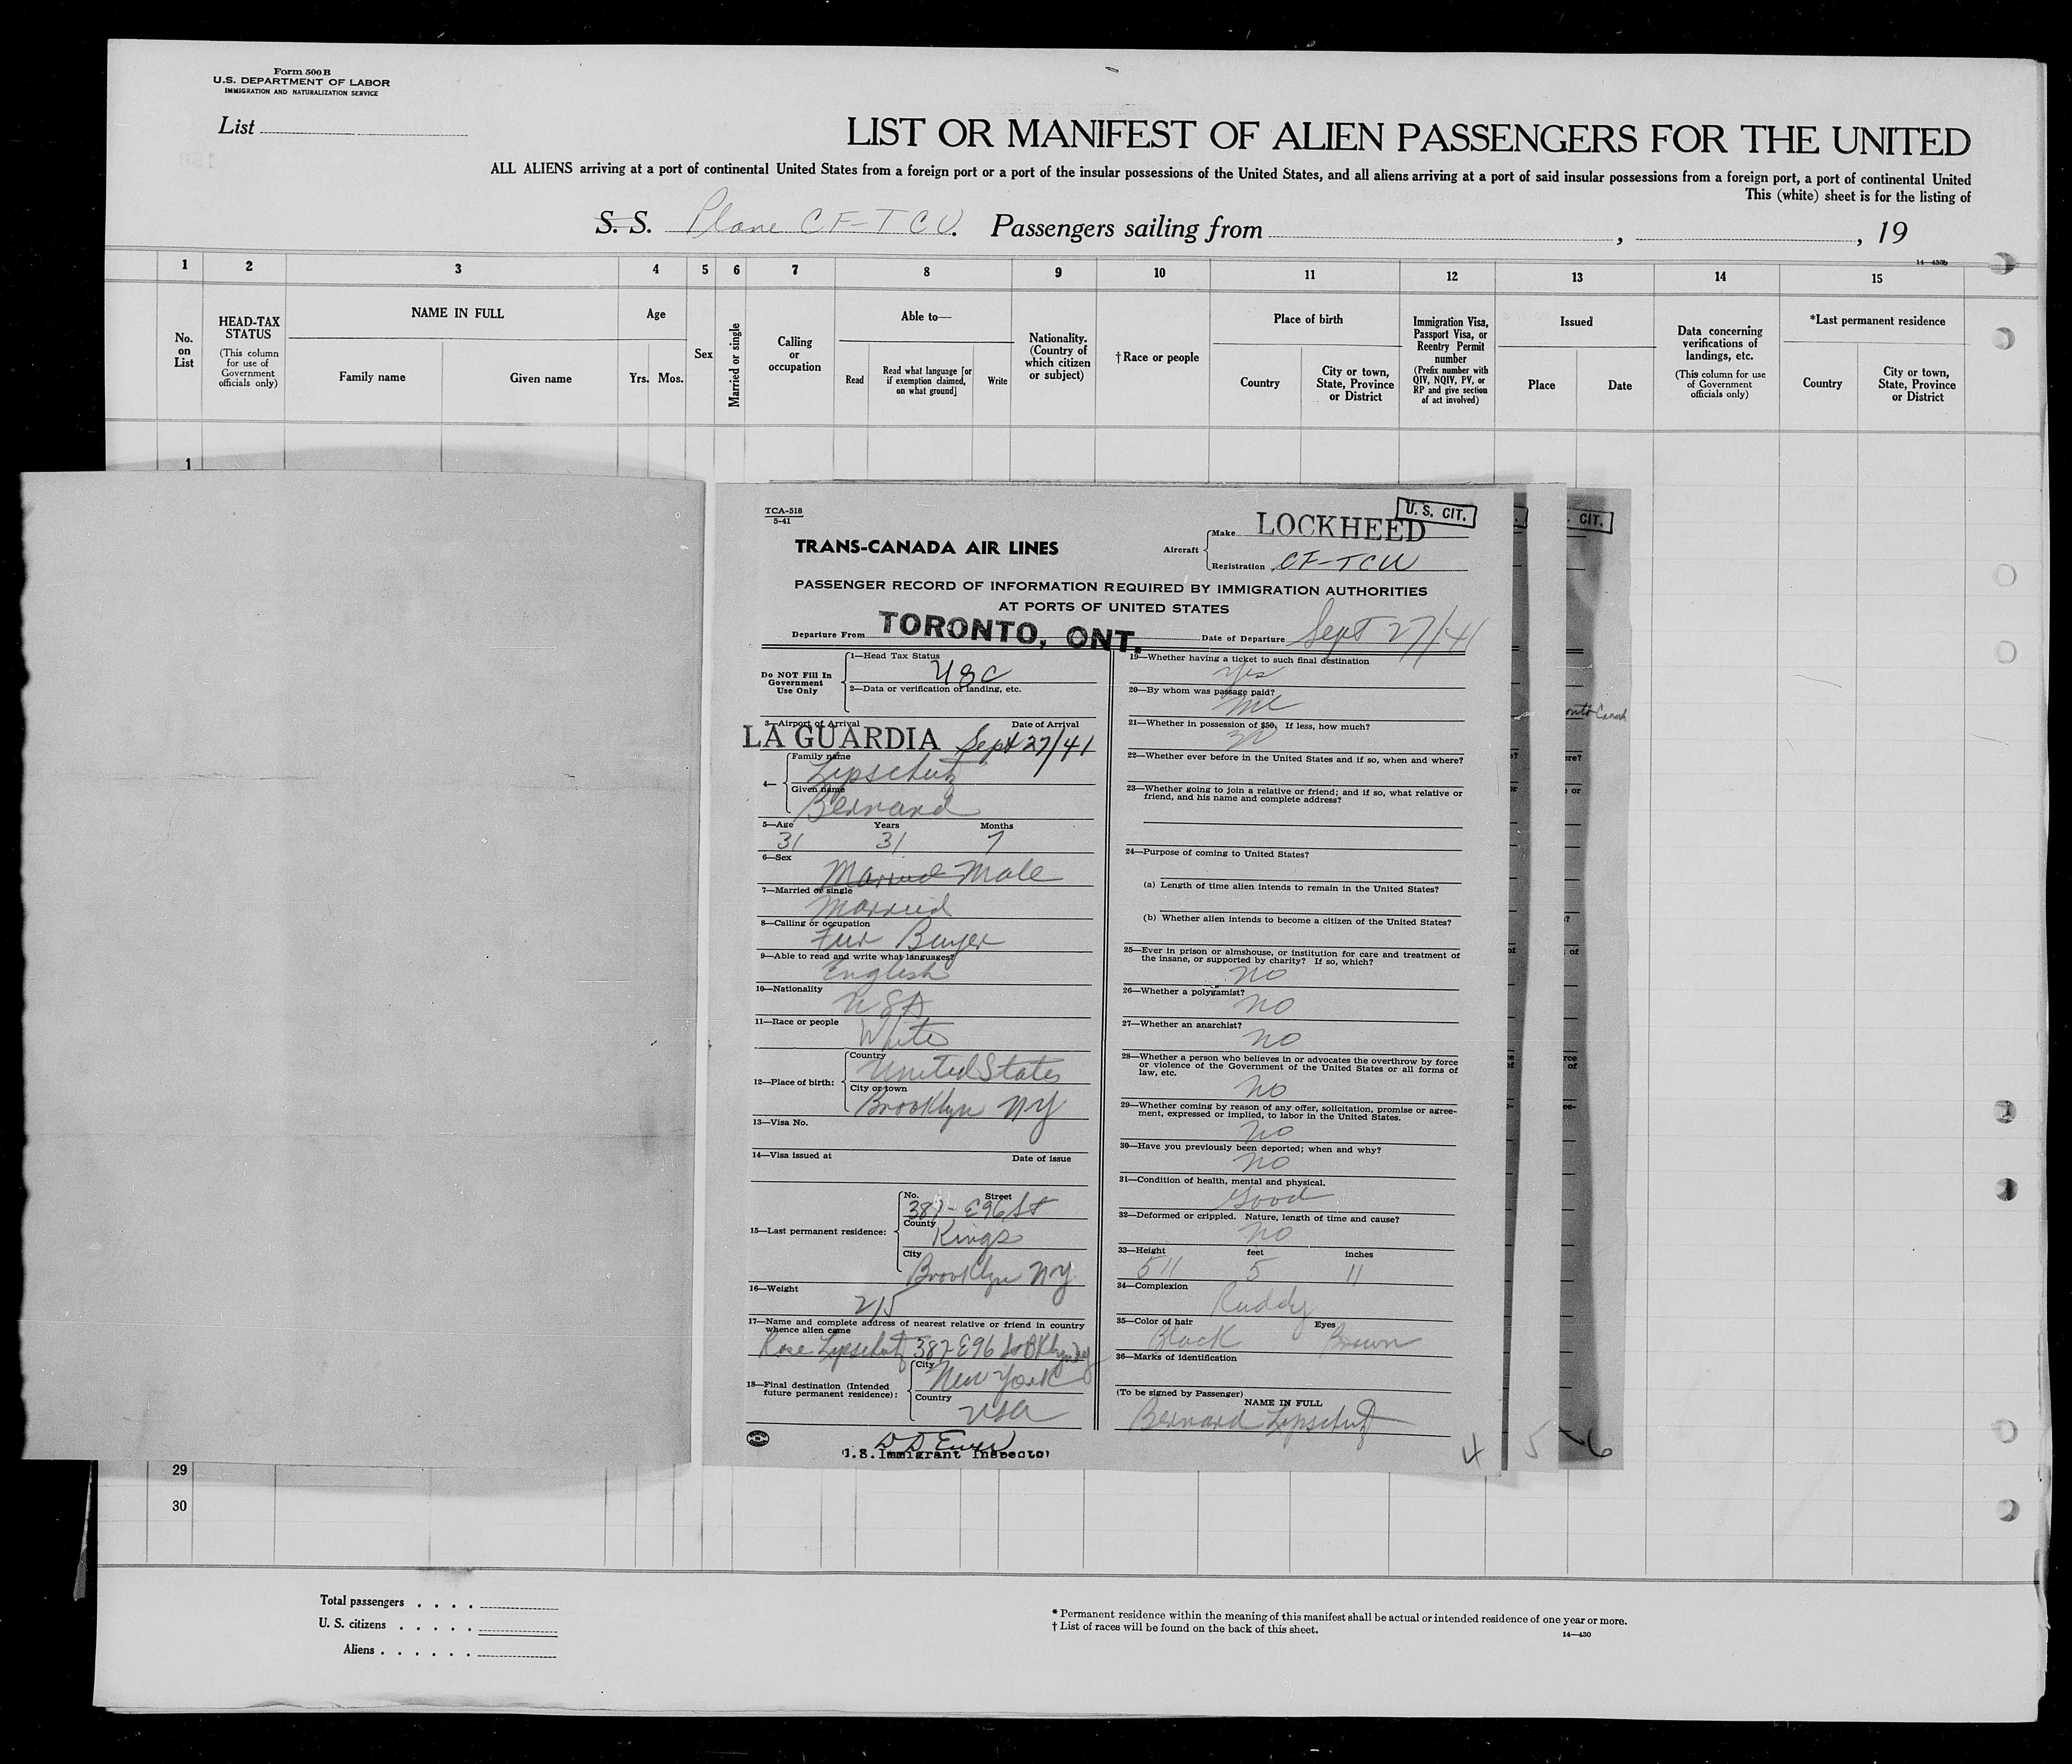 Form 500 B
U.S. DEPARTMENT OF LABOR
IMMIGRATION AND NATURALIZATION SERVICE
List
LIST OR MANIFEST OF ALIEN PASSENGERS FOR THE UNITED
ALL ALIENS arriving at a port of continental United States from a foreign port or a port of the insular possessions of the United States, and all aliens arriving at a port of said insular possessions from a foreign port, a port of continental United
This (white) sheet is for the listing of
S. S. Plane CF-TCU. Passengers sailing from , , 19
14—430b
1 2 3 4 5 6 7 8 9 10 11 12 13 14 15
No. on List
HEAD-TAX STATUS
(This column for use of Government officials only)
NAME IN FULL
Family name
Given name
Age
Yrs. Mos.
Sex
Married or single
Calling or occupation
Able to—
Read
Read what language [or if exemption claimed, on what ground]
Write
Nationality. (Country of which citizen or subject)
†Race or people
Place of birth
Country
City or town, State, Province or District
Immigration Visa, Passport Visa, or Reentry Permit number
(Prefix number with QIV, NQIV, PV, or RP and give section of act involved)
Issued
Place
Date
Data concerning verifications of landings, etc.
(This column for use of Government officials only)
*Last permanent residence
Country
City or town, State, Province or District
1
TCA-518
5-41
TRANS-CANADA AIR LINES
Aircraft
Make LOCKHEED
U. S. CIT.
Registration CF-TCU
CIT.
PASSENGER RECORD OF INFORMATION REQUIRED BY IMMIGRATION AUTHORITIES
AT PORTS OF UNITED STATES
Departure From TORONTO, ONT. Date of Departure Sept 27/41
Do NOT Fill In Government Use Only
1—Head Tax Status
USC
2—Data or verification of landing, etc.
3—Airport of Arrival Date of Arrival
LA GUARDIA Sept 27/41
4—
Family name
Lipschutz
Given name
Bernard
5—Age Years Months
31 31 7
6—Sex
Married Male
7—Married or single
Married
8—Calling or occupation
Fur Buyer
9—Able to read and write what languages?
English
10—Nationality
USA
11—Race or people
White
12—Place of birth:
Country
United States
City or town
Brooklyn NY
13—Visa No.
14—Visa issued at Date of issue
15—Last permanent residence:
No. Street
387- E96 St
County
Kings
City
Brooklyn NY
16—Weight
215
17—Name and complete address of nearest relative or friend in country
whence alien came
Rose Lipschutz 387-E96 St Bklyn NY
18—Final destination (Intended
future permanent residence):
City
New York
Country
USA
U.S. Immigrant Inspector
19—Whether having a ticket to such final destination
yes
20—By whom was passage paid?
me
21—Whether in possession of $50, If less, how much?
22—Whether ever before in the United States and if so, when and where?
23—Whether going to join a relative or friend; and if so, what relative or
friend, and his name and complete address?
24—Purpose of coming to United States?
(a) Length of time alien intends to remain in the United States?
(b) Whether alien intends to become a citizen of the United States?
25—Ever in prison or almshouse, or institution for care and treatment of
the insane, or supported by charity? If so, which?
no
26—Whether a polygamist?
no
27—Whether an anarchist?
no
28—Whether a person who believes in or advocates the overthrow by force
or violence of the Government of the United States or all forms of
law, etc.
no
29—Whether coming by reason of any offer, solicitation, promise or agree-
ment, expressed or implied, to labor in the United States.
no
30—Have you previously been deported; when and why?
no
31—Condition of health, mental and physical.
Good
32—Deformed or crippled. Nature, length of time and cause?
no
33—Height feet inches
511 5 11
34—Complexion
Ruddy
35—Color of hair Eyes
Black Brown
36—Marks of identification
(To be signed by Passenger)
NAME IN FULL
Bernard Lipschutz
4 5 6
29
30
Total passengers
U. S. citizens
Aliens
* Permanent residence within the meaning of this manifest shall be actual or intended residence of one year or more.
† List of races will be found on the back of this sheet.
14—430